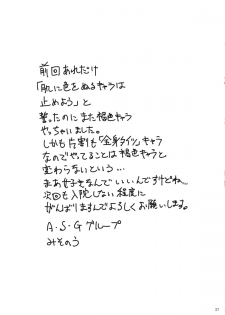 前回あれだけ
「肌に色をぬるキャラは
止めよう」と
誓ったのにまた褐色キャラ
やっちゃいました。
しかも片割も「全身タイツ」キャラ
なのでやってることは褐色キャラと
変わらないという…
まあ好きなんでいいんですけどね。
次回も入院しない程度に
がんばりますんでよろしくお願いします。
A・S・Gグループ
みそのう
37